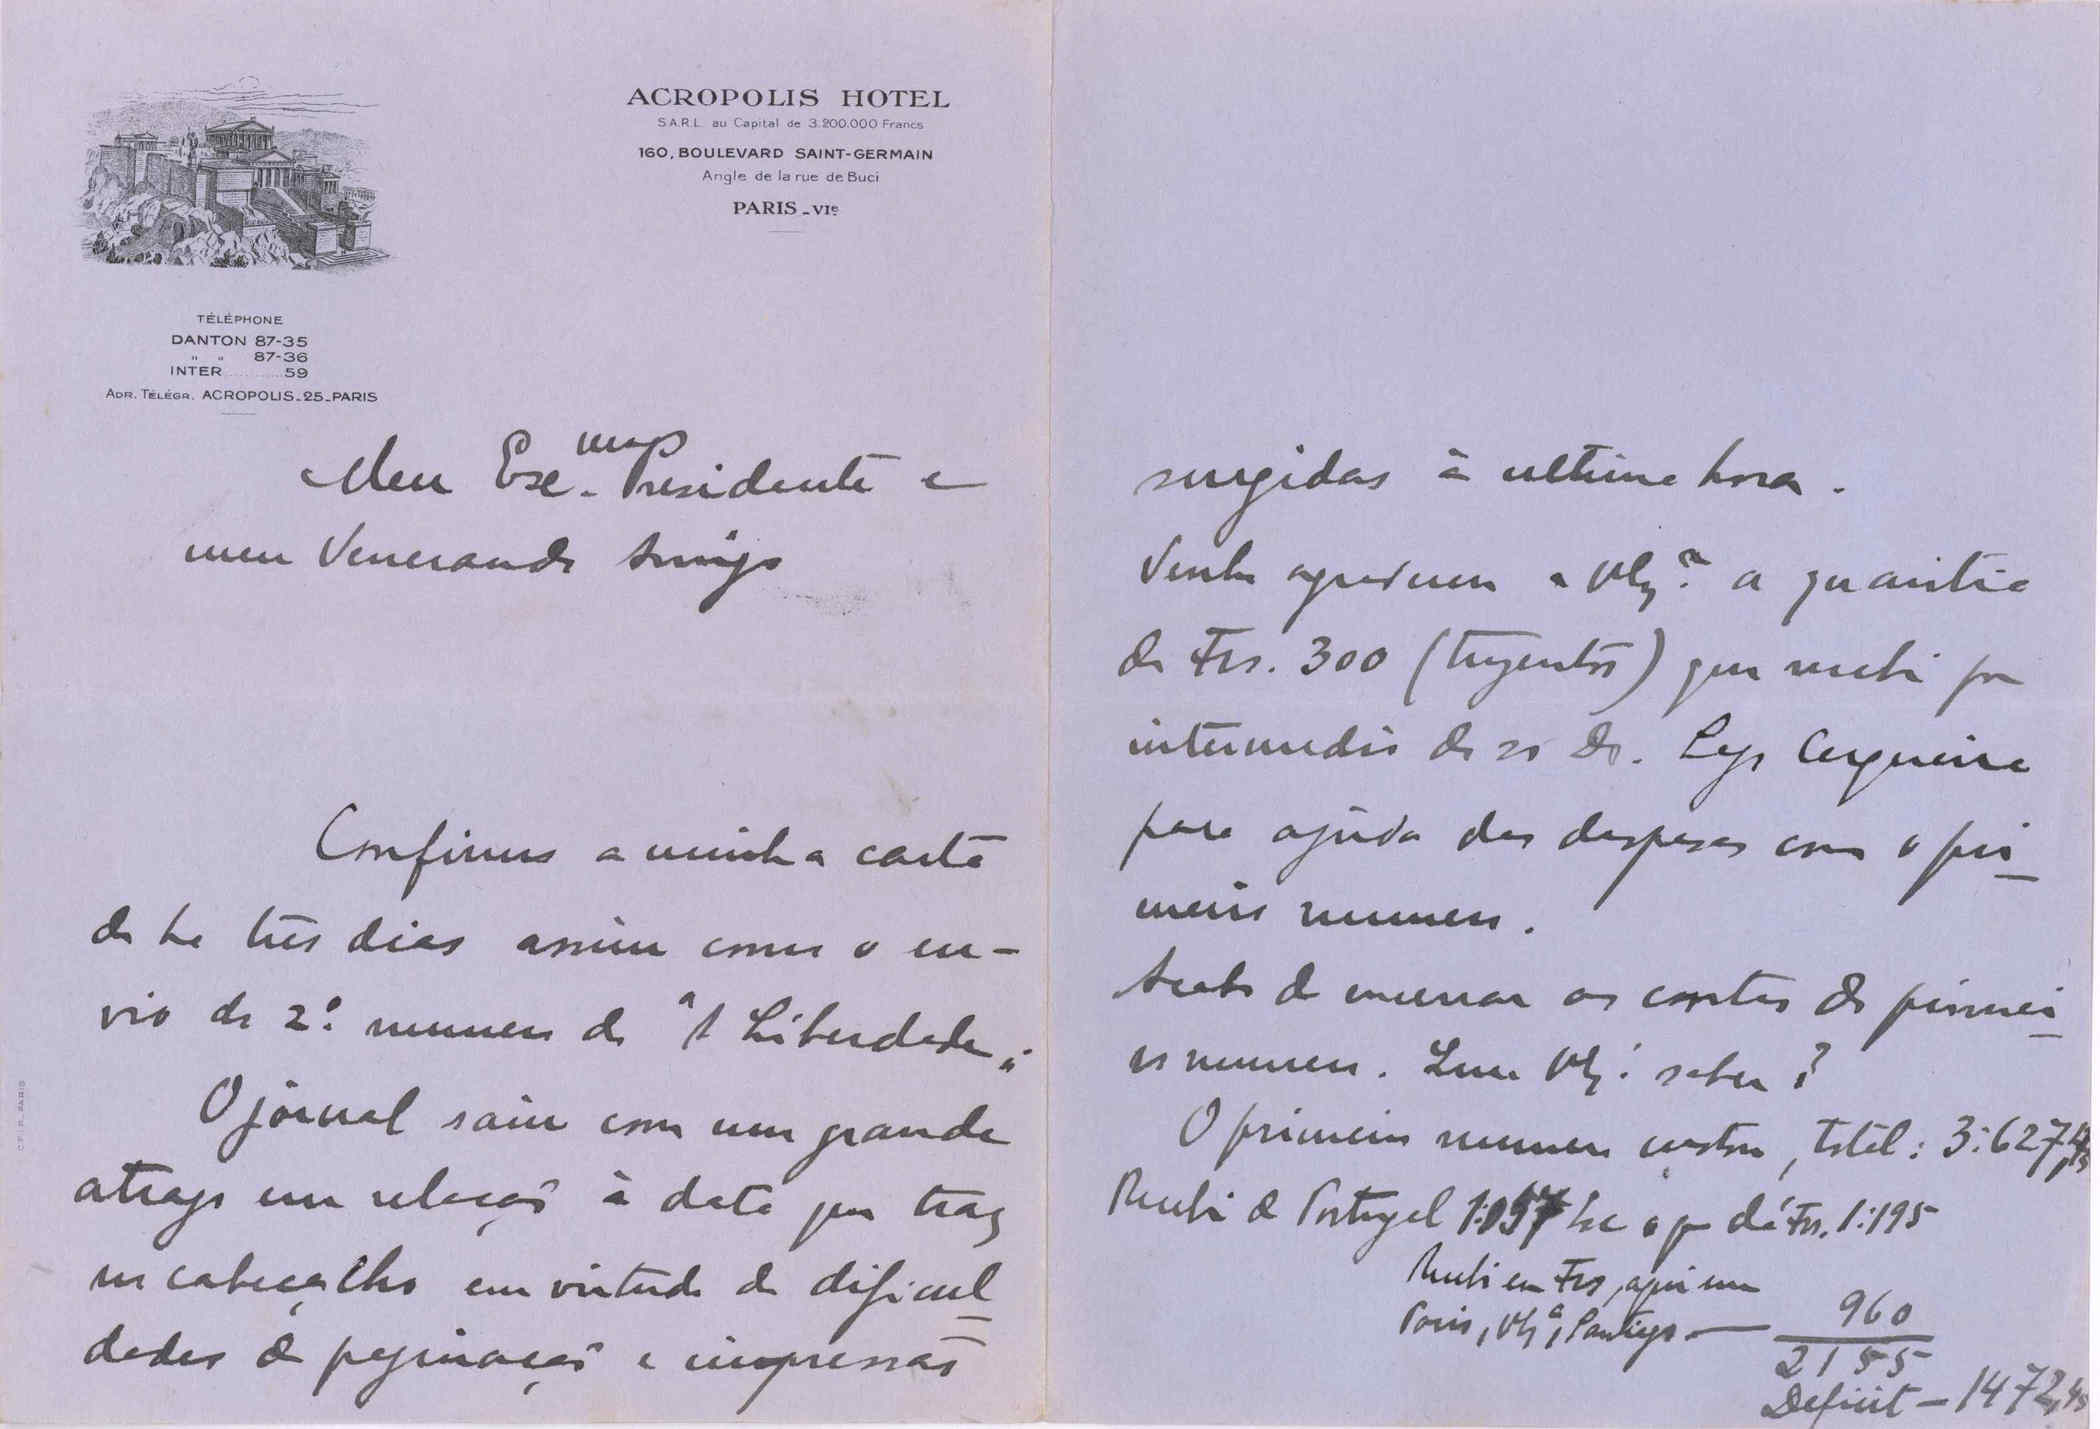 ACROPOLIS HOTEL
S.A.R.L. au Capital de 3.200.000 Francs
160, BOULEVARD SAINT-GERMAIN
Angle de la rue de Buci
PARIS - VIe
TÉLÉPHONE
DANTON 87-35
" " 87-36
INTER ............ 59
ADR. TÉLÉGR. ACROPOLIS-25-PARIS
Meu Exe.mo Presidente e
meu Venerando Amigo
Confirmo a minha carta
de ha três dias assim como o en-
vio do 2º numero de "A Liberdade".
O jornal saiu com um grande
atrazo em relação à data que traz
no cabeçalho em virtude de dificul
dades de paginação e impressão
surgidas à ultima hora.
Venho agradecer a a quantia
de Frs. 300 (trezentos) que recebi por
intermedio do sr Dr. Cerqueira
para ajuda das despesas com o pri
meiro numero.
Acabo de encerrar as contas do primei
ro numero. saber?
O primeiro numero custou, total: 3:627,45
Recebi de Portugal 1:057 o que dá Frs. 1:195
Recebi em Frs, aqui em
Paris, 960
2155
Deficit - 1472,45
C.P.I.P. PARIS